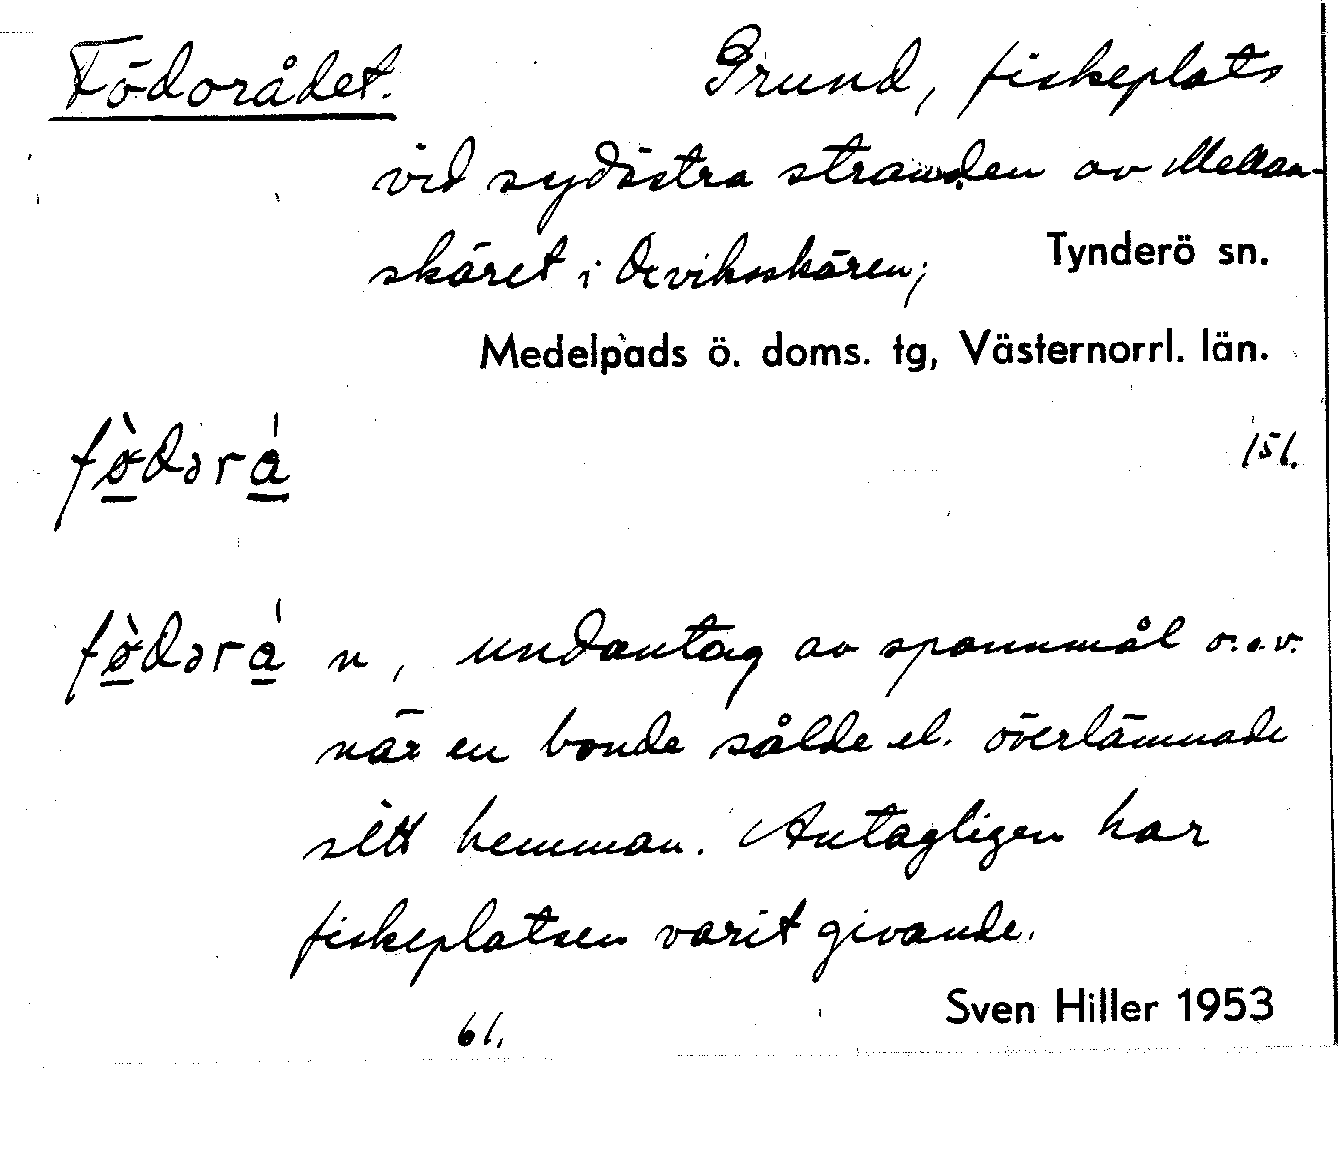 Födorådet. Grund, fiskeplats
vid sydöstra stranden av Mellan-
skäret i Åkviksskären; Tynderö sn.
Medelpads ö. doms. tg, Västernorrl. län.
fö̀dərá 151.
fö̀dərá n, undantag av spannmål o.s.v.
när en bonde sålde el. överlämnade
sitt hemman. Antagligen har
fiskeplatsen varit givande.
Sven Hiller 1953
61.